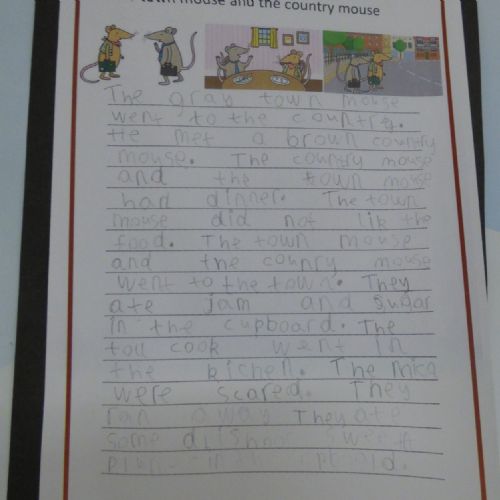 town mouse and the country mouse
The gray town mouse
went to the country.
He met a brown country
mouse. The country mouse
and the town mouse
had dinner. The town
mouse did not lik the
food. The town mouse
and the counry mouse
went to the town. They
ate jam and sugar
in the cupboard. The
tall cook went in
the kichen. The mice
were scared. They
ran away They ate
some